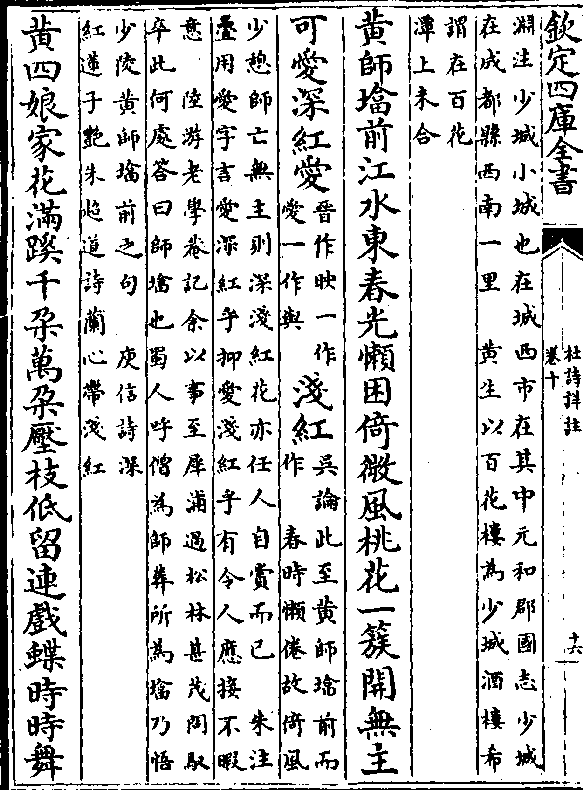 欽定四庫全書
杜詩詳註
卷十
十六
淵注少城小城也在城西市在其中元和郡國志少城
在成都縣西南一里　黃生以百花樓為少城酒樓希
謂在百花
潭上未合
黄師塔前江水東春光懶困倚微風桃花一簇開無主
可愛深紅愛晉作映一作愛一作與淺紅吳論此至黄師塔前而作　春時懶倦故倚風
少憩師亡無主則深淺紅花亦任人自賞而已　朱注
疊用愛字言愛深紅乎抑愛淺紅乎有令人應接不暇
意　陸游老學菴記余以事至犀浦過松林甚茂問馭
卒此何處答曰師塔也蜀人呼僧為師葬所為塔乃悟
少陵黄師塔前之句　庾信詩深
紅蓮子艷朱超道詩蘭心帶淺紅
黄四娘家花滿蹊千朶萬朶壓枝低留連戲蝶時時舞